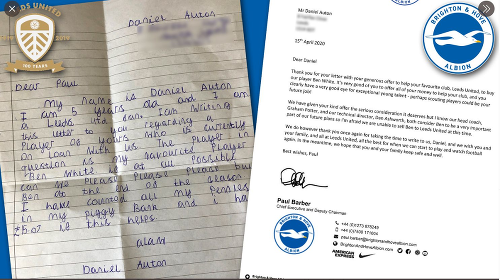 LEEDS UNITED
100 YEARS
Daniel Auton
Dear Paul
My name is Daniel Auton
I am 5 years old and I am
a Leeds Utd fan. I am writing
this letter to you regarding a
Player of yours who is currently
on loan with us. The Player in
question is my favourite Player
"Ben White" is at all Possible
can we Please Please Please buy
Ben at the end of the season
I have counted all my Pennies
in my Piggy Bank and i have
£15.07 if this helps.
Daniel Auton
BRIGHTON & HOVE
ALBION
Mr Daniel Auton
15th April 2020
Dear Daniel
Thank you for your letter with your generous offer to help your favourite club, Leeds United, to buy
our player Ben White. It's very good of you to offer all of your money to help your club, and you
clearly have a very good eye for exceptional young talent - perhaps scouting players could be your
future job!
We have given your kind offer the serious consideration it deserves but I know our head coach,
Graham Potter, and our technical director, Dan Ashworth, both consider Ben to be a very important
part of our future plans so I'm afraid we are unable to sell Ben to Leeds United at this time.
We do however thank you once again for taking the time to write to us, Daniel, and we wish you and
your family, and all at Leeds United, all of the best for when we can start to play and watch football
again. In the meantime, we hope that you and your family keep safe and well.
Best wishes, Paul
Paul Barber
Chief Executive and Deputy Chairman
BRIGHTON & HOVE
ALBION
paul.barber@brightonandhovealbion.com
BrightonAndHoveAlbion.com
AMERICAN EXPRESS